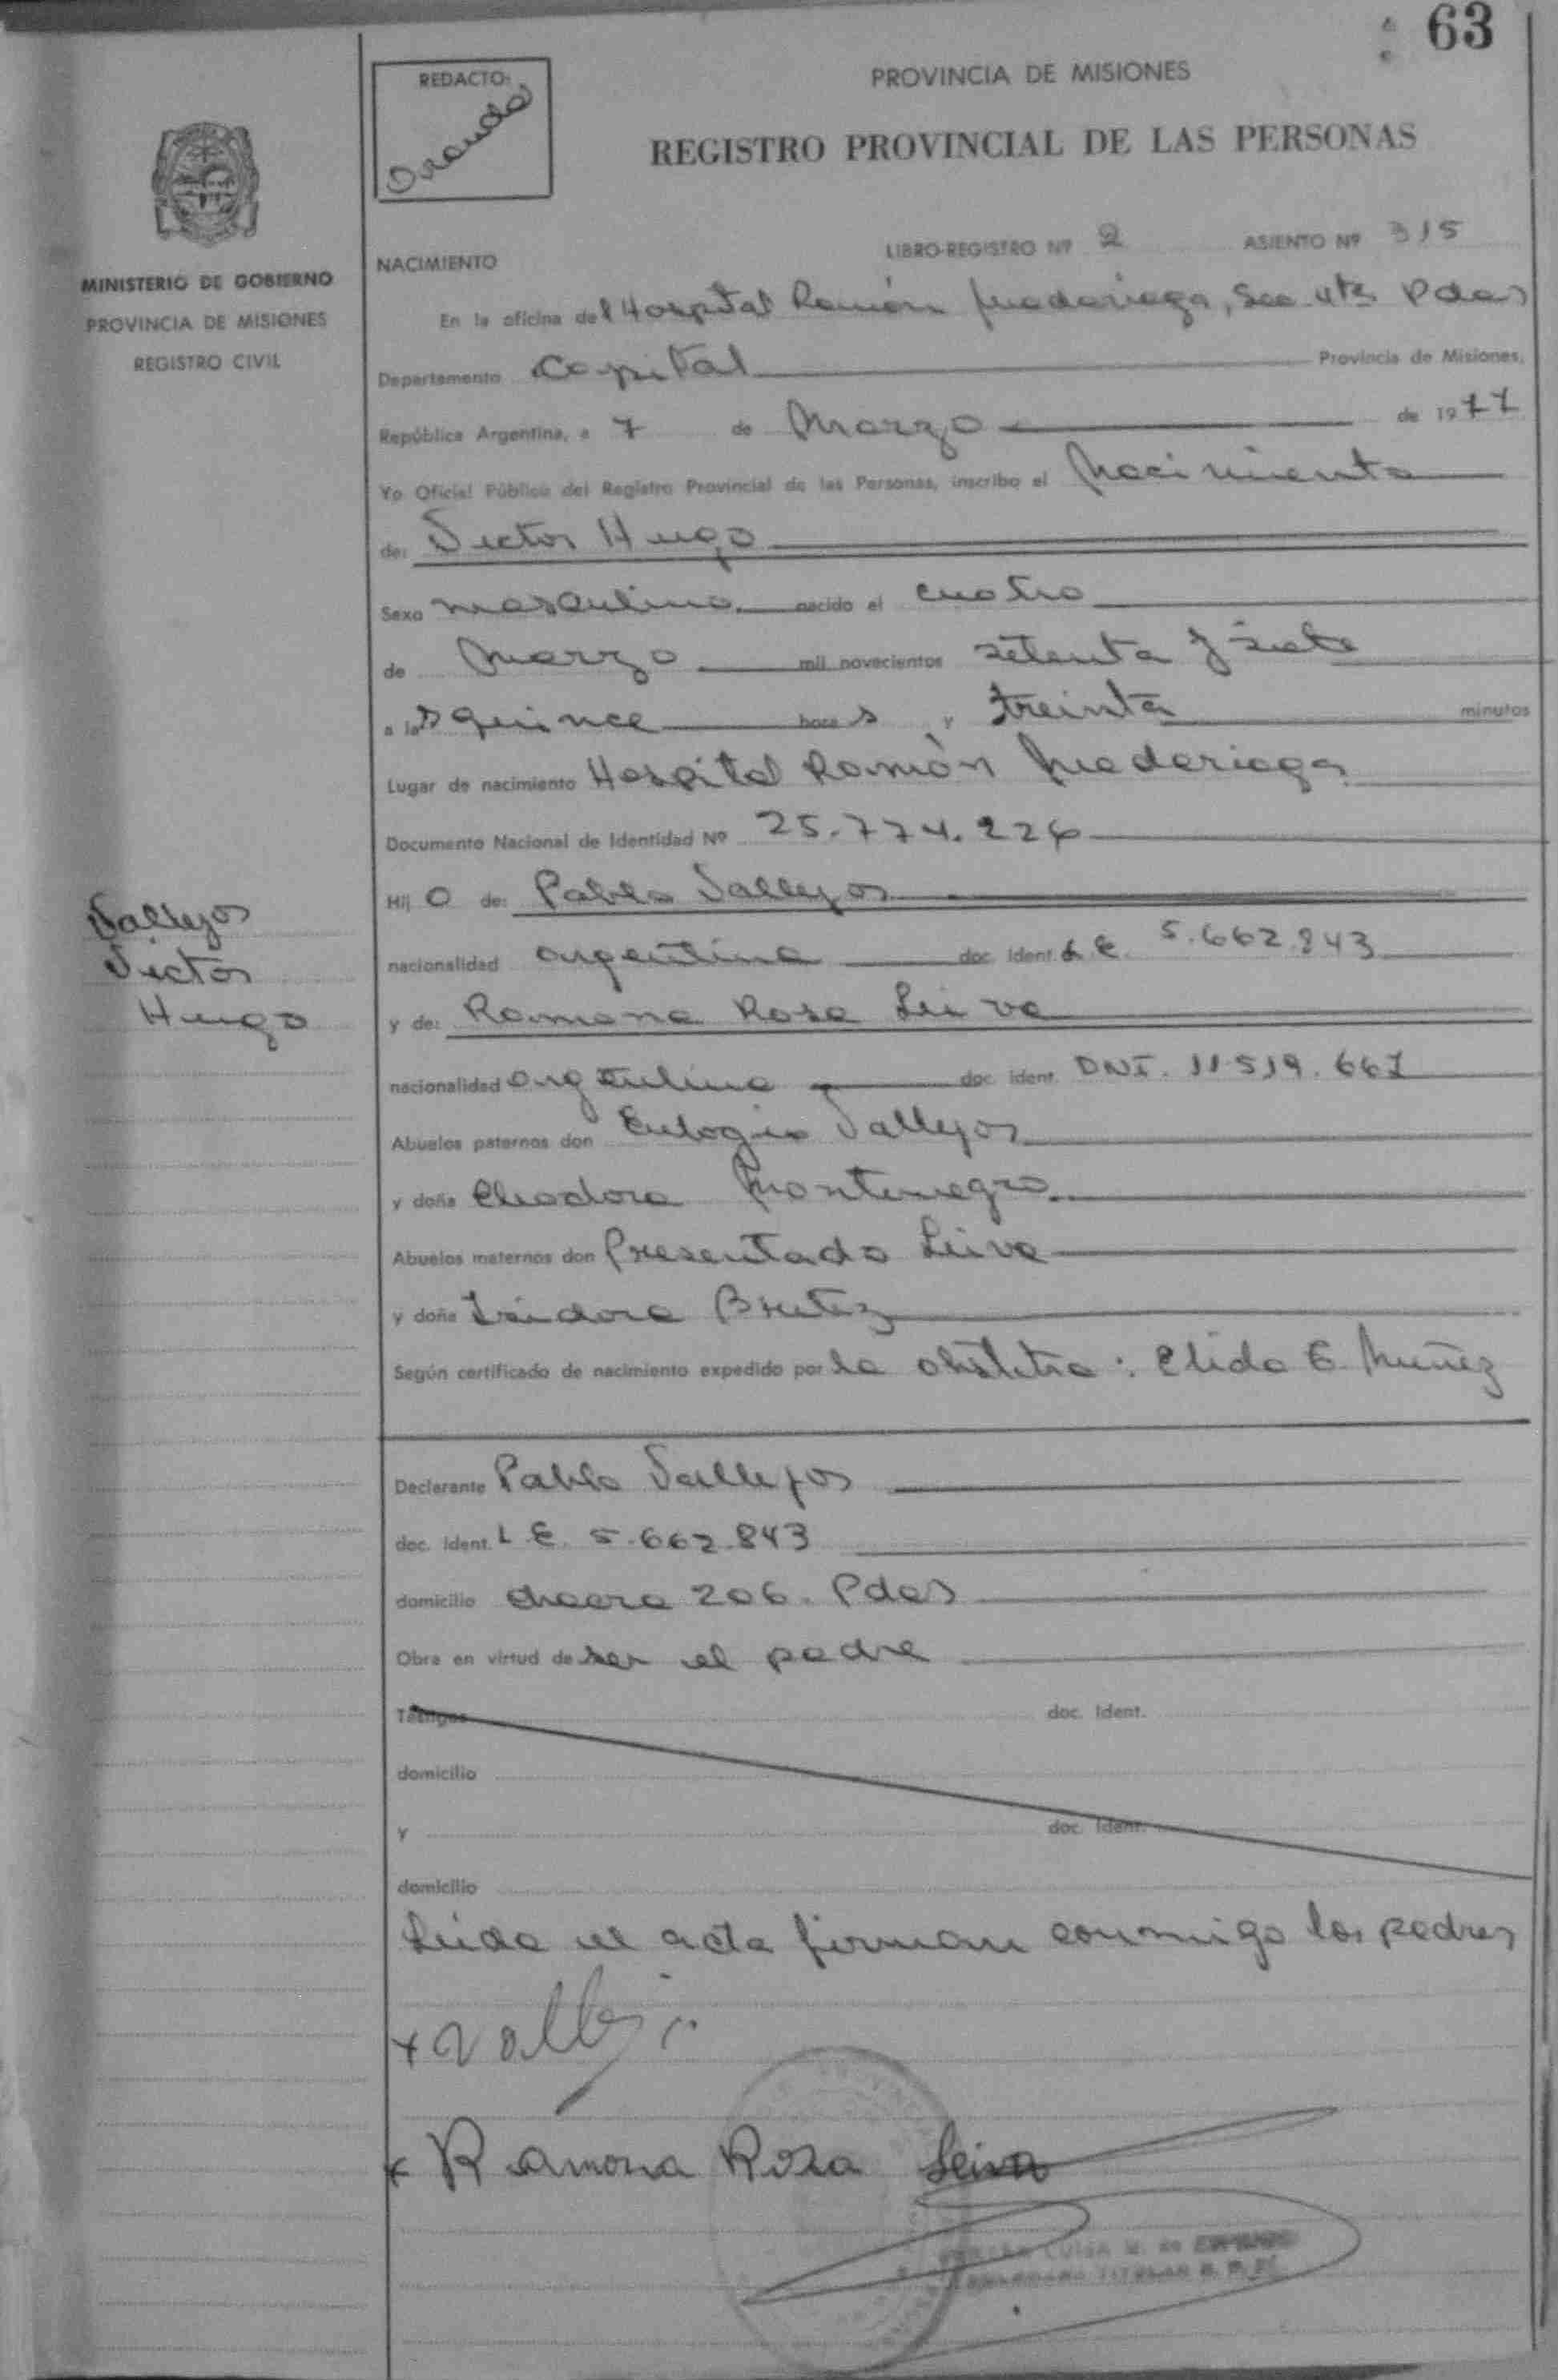 63
REDACTO:
PROVINCIA DE MISIONES
REGISTRO PROVINCIAL DE LAS PERSONAS
MINISTERIO DE GOBIERNO
PROVINCIA DE MISIONES
REGISTRO CIVIL
NACIMIENTO LIBRO-REGISTRO Nº 2 ASIENTO Nº 315
En la oficina del Hospital Ramón Madariaga, Sec 4ta Pdas
Departamento Capital Provincia de Misiones,
República Argentina, a 7 de Marzo de 1977
Yo Oficial Público del Registro Provincial de las Personas, inscribo el Nacimiento
de: Victor Hugo
Sexo masculino nacido el cuatro
de Marzo mil novecientos setenta y siete
a las quince horas y treinta minutos
Lugar de nacimiento Hospital Ramón Madariaga
Documento Nacional de Identidad Nº 25.774.226
Hijo de: Pablo Vallejos
nacionalidad argentina doc. ident. L.E. 5.662.843
y de: Ramona Rosa Leiva
nacionalidad argentina doc. ident. DNI. 11.519.667
Abuelos paternos don Eulogio Vallejos
y doña Eleodora Montenegro
Abuelos maternos don Presentado Leiva
y doña Isidora Britez
Según certificado de nacimiento expedido por la obstetra: Elida E. Nuñez
Vallejos
Victor
Hugo
Declarante Pablo Vallejos
doc. ident. L.E. 5.662.843
domicilio chacra 206. Pdas
Obra en virtud de ser el padre
Testigos doc. Ident.
domicilio
y doc. Ident.
domicilio
Leida el acta firman conmigo los padres
Ramona Rosa Leiva